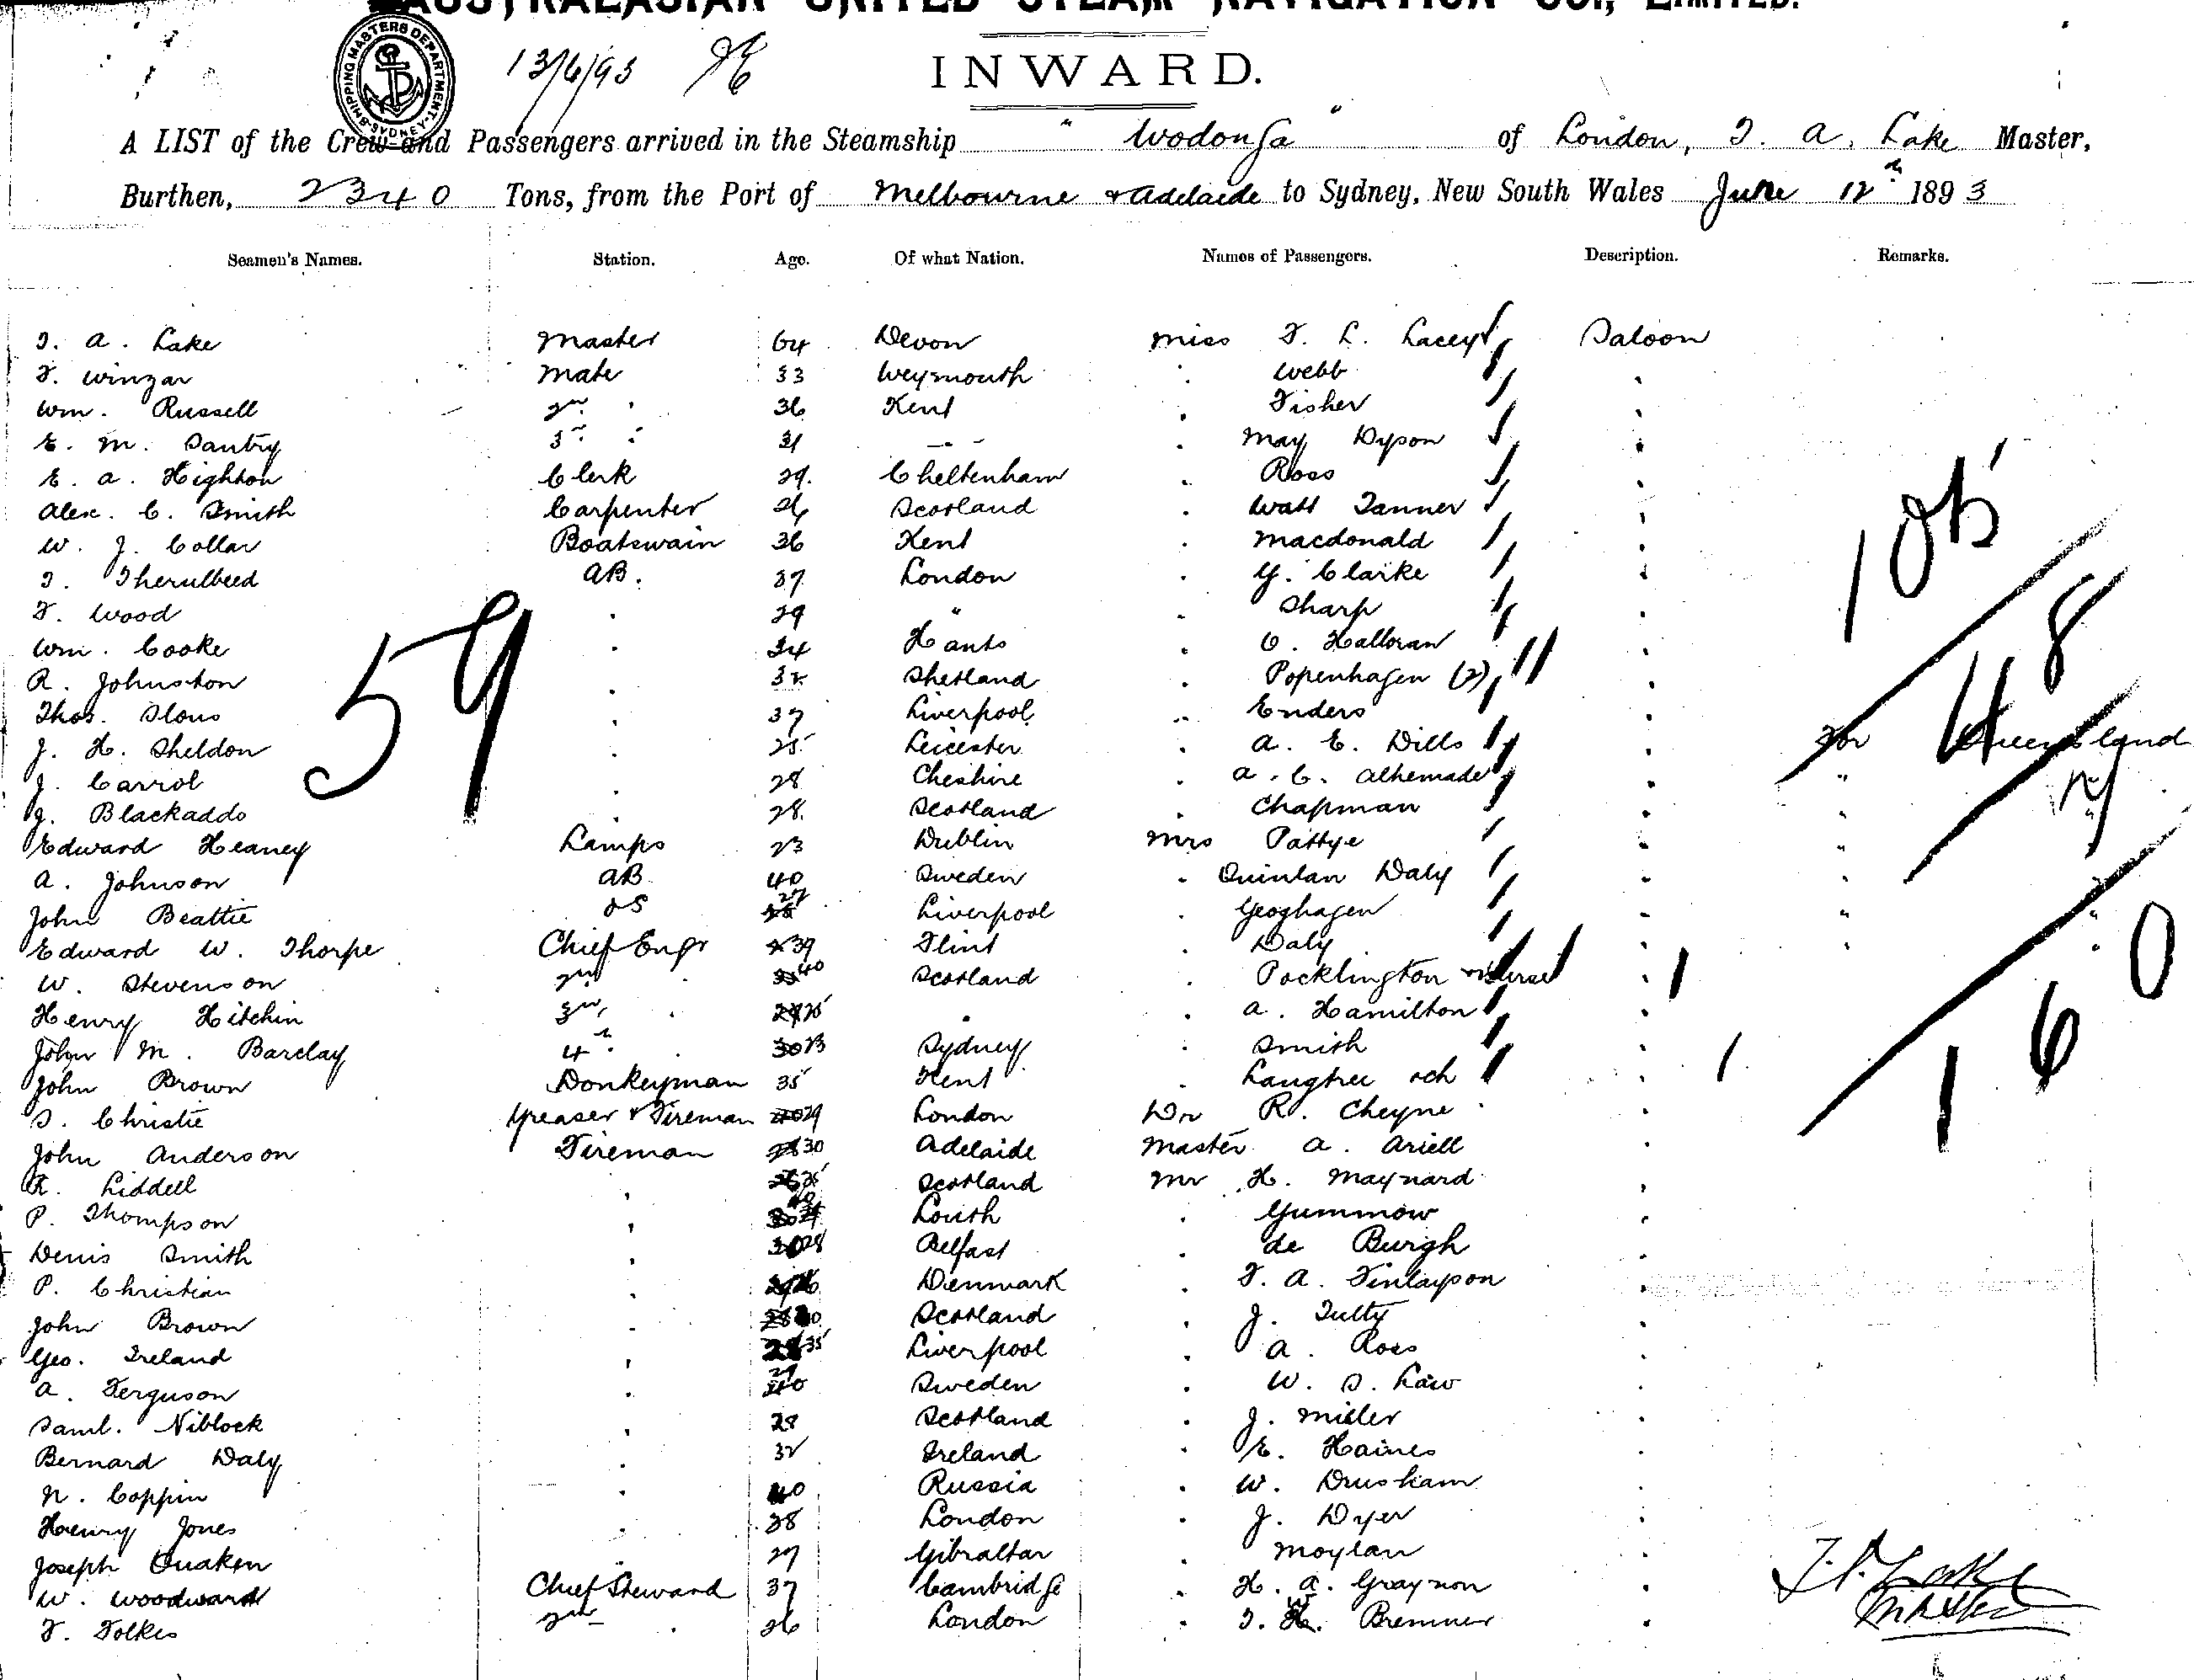 AUSTRALASIAN UNITED STEAM NAVIGATION CO., LIMITED.
SHIPPING MASTERS DEPARTMENT SYDNEY
13/6/93
INWARD.
A LIST of the Crew and Passengers arrived in the Steamship "Wodonga" of London, T. A. Lake Master,
Burthen, 2340 Tons, from the Port of Melbourne & Adelaide to Sydney, New South Wales June 12th 1893
Seamen's Names. Station. Age. Of what Nation. Names of Passengers. Description. Remarks.
T. A. Lake Master 64 Devon Miss F. L. Lacey Saloon
F. Winzar Mate 33 Weymouth " Webb "
Wm. Russell 2nd " 36 Kent " Fisher "
E. M. Santry 3rd " 31 " May Dyson "
E. A. Highton Clerk 29 Cheltenham " Ross "
Alex. C. Smith Carpenter 26 Scotland " Watt Tanner "
W. J. Collar Boatswain 36 Kent " Macdonald "
T. AB. 37 London " Y. Clarke "
F. Wood " 29 " " Sharp "
Wm. Cooke " 34 Hants " O. Halloran "
R. Johnston " 32 Shetland " Popenhagen (2) "
Thos. Slous " 37 Liverpool " Enders "
J. H. Sheldon " 25 Leicester " A. E. Dills " For Queensland
J. Carrol " 28 Cheshire " A. C. Alhemade " "
J. Blackaddo " 28 Scotland " Chapman " "
Edward Heaney Lamps 23 Dublin Mrs Pattye " "
A. Johnson AB 40 Sweden " Quinlan Daly " "
John Beattie OS 27 Liverpool " Geoghagen " "
Edward W. Thorpe Chief Engr 39 Flint " Daly " "
W. Stevenson 2nd 40 Scotland " Pocklington "
Henry Hitchin 3rd " " " A. Hamilton "
John M. Barclay 4th " 30 23 Sydney " Smith "
John Brown Donkeyman 35 Kent " Langtree "
S. Christie Greaser & Fireman 29 London Dr R. Cheyne "
John Anderson Fireman 30 Adelaide Master A. Ariell "
R. Liddell " Scotland Mr H. Maynard "
P. Thompson " Louth " Gummow "
Denis Smith " 28 Belfast " de Burgh "
P. Christian " 26 Denmark " F. A. Finlayson "
John Brown " Scotland " J. Tulty "
Geo. Ireland " 35 Liverpool " A. Ross "
A. Ferguson " Sweden " W. S. Law "
Saml. Niblock " 28 Scotland " J. Miller "
Bernard Daly " 32 Ireland " E. Haines "
N. Coppin " 40 Russia " W. "
Henry Jones " 38 London " J. Dyer "
Joseph Quaken " 27 Gibraltar " Moylan "
W. Woodward Chief Steward 37 Cambridge " H. A. "
F. Folkes 2nd " 26 London " T. W. Bremner "
59
105
48
7
160
T. A. Lake
Master